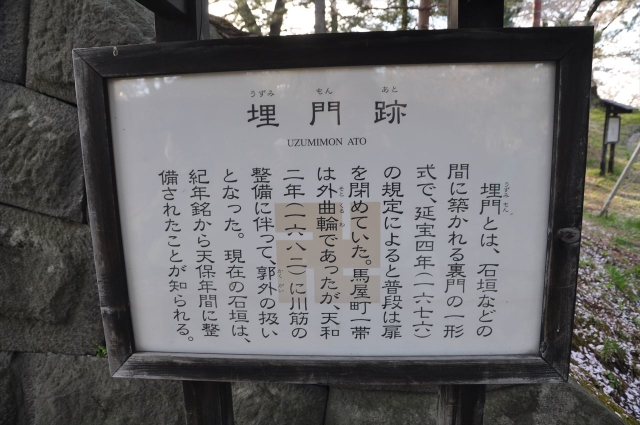 うずみ もん あと
埋門跡
UZUMIMON ATO
うずみ もん
埋門とは、石垣などの
間に築かれる裏門の一形
式で、延宝四年(一六七六)
の規定によると普段は扉
を閉めていた。馬屋町一帯
そと くる わ
は外曲輪であったが、天和
二年(一六八二)に川筋の
かく がい
整備に伴って、郭外の扱い
となった。現在の石垣は、
紀年銘から天保年間に整
備されたことが知られる。